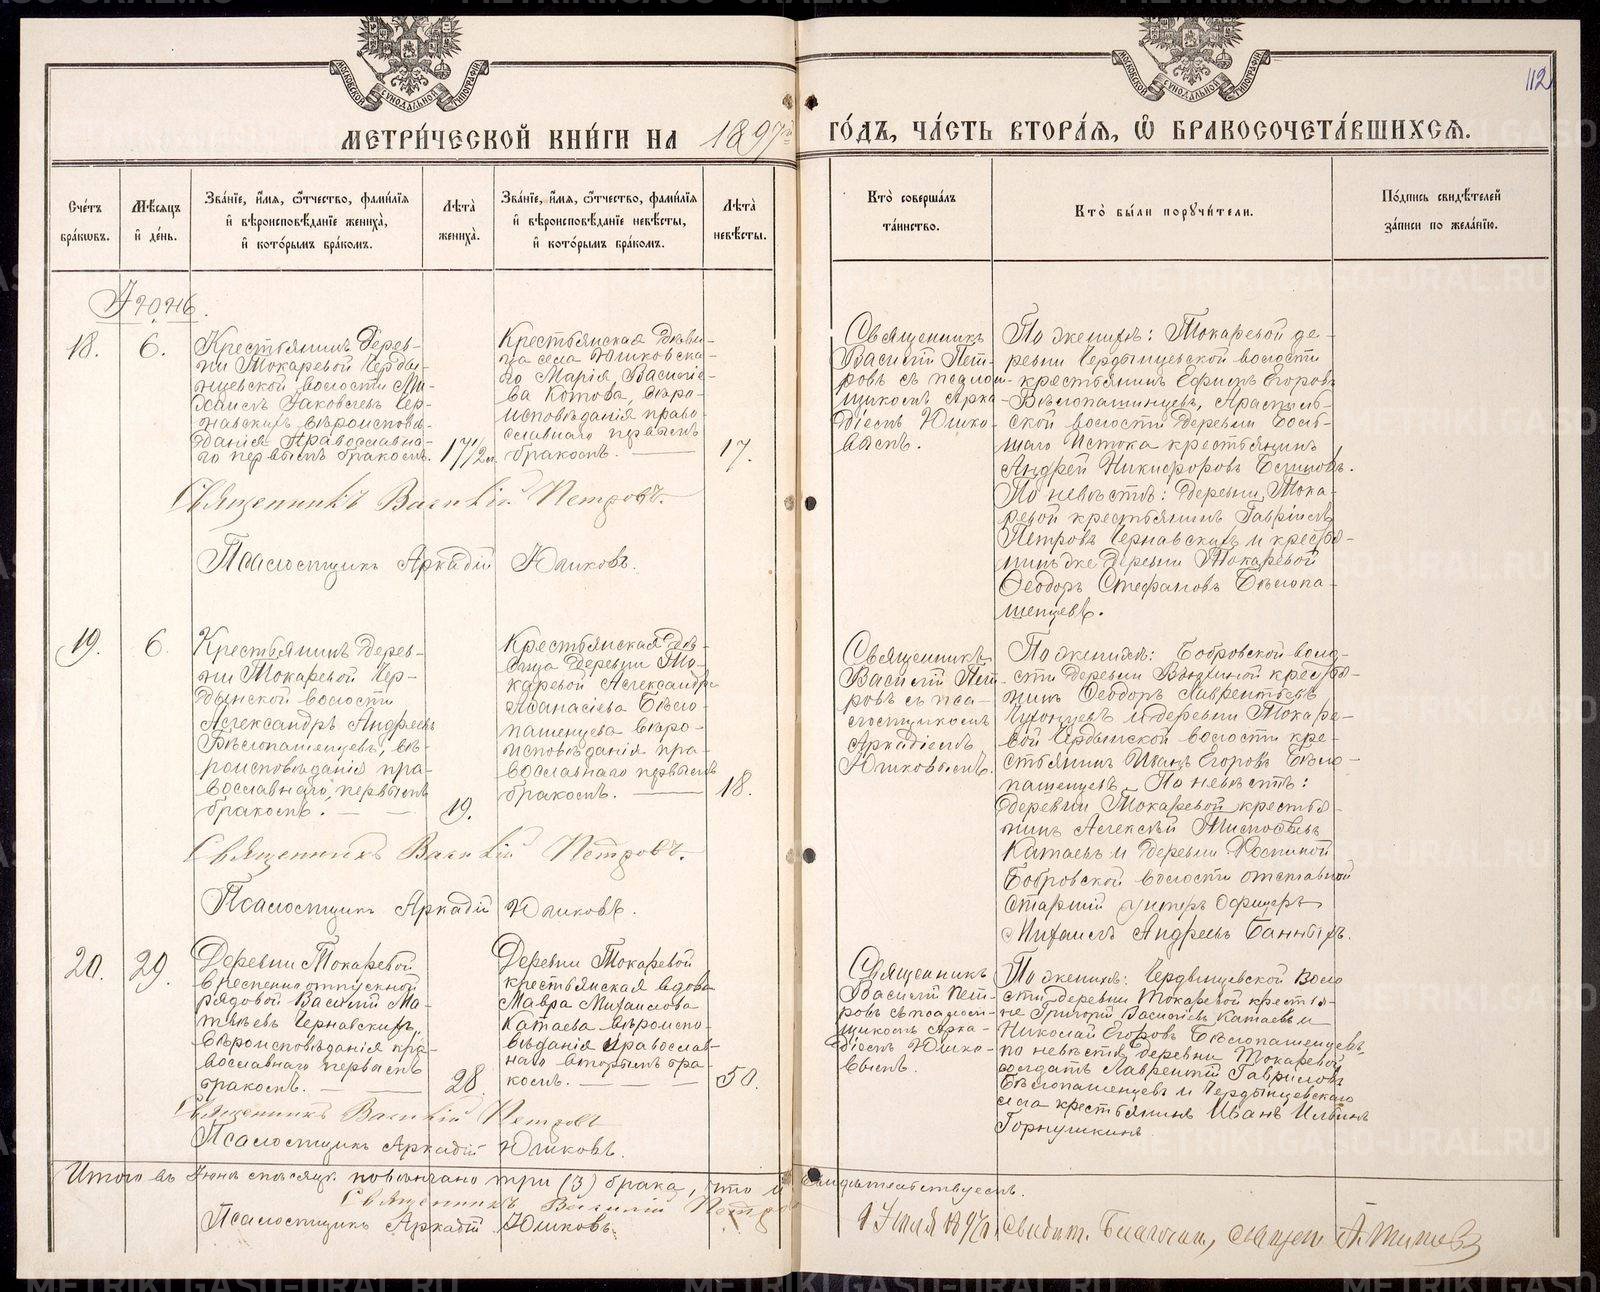 112
МЕТРИЧЕСКОЙ КНИГИ НА 1897й ГОДЪ, ЧАСТЬ ВТОРАЯ, Ѡ БРАКОСОЧЕТАВШИХСЯ.
Счетъ браковъ.
Мѣсяцъ и день.
Званіе, имя, ѿчество, фамилія
и вѣроисповѣданіе жениха,
и которымъ бракомъ.
Лѣта
жениха.
Званіе, имя, ѿчество, фамилія
и вѣроисповѣданіе невѣсты,
и которымъ бракомъ.
Лѣта
невѣсты.
Кто совершалъ
таинство.
Кто были поручители.
Подпись свидѣтелей
записи по желанію.
Іюнь.
18.
6.
Крестьянинъ Дерев-
ни Токаревой Черды-
нцевской волости Ми-
хаилъ Іаковлевъ Чер-
навскихъ вѣроисповѣ-
данія Православна-
го первымъ бракомъ.
17 1/2
Крестьянская Дѣви-
ца села Юшковска-
го Марія Василіе-
ва Котова, вѣро-
исповѣданія право-
славнаго первымъ
бракомъ.
17.
Священникъ
Василій Пет-
ровъ съ псалом-
щикомъ Арка-
діемъ Юшко-
вымъ.
По женихѣ: Токаревой де-
ревни Чердынцевской волости
крестьянинъ Ефимъ Егоровъ
Бѣлопашинцевъ, Арамиль-
ской волости деревни Боль-
шаго Истока крестьянинъ
Андрей Никифоровъ
По невѣстѣ: деревни Тока-
ревой крестьянинъ Гавріилъ
Петровъ Чернавскихъ и кресть-
янинъ же деревни Токаревой
Ѳеодоръ Стефановъ Бѣлопа-
шенцевъ.
Священникъ Василій Петровъ.
Псаломщикъ Аркадій Юшковъ.
19.
6.
Крестьянинъ Дерев-
ни Токаревой Чер-
дынской волости
Александръ Андреевъ
Бѣлопашенцевъ, вѣ-
роисповѣданія пра-
вославнаго, первымъ
бракомъ.
19.
Крестьянская Дѣ-
вица деревни То-
каревой Александра
Аѳанасіева Бѣло-
пашенцева вѣро-
исповѣданія пра-
вославнаго первымъ
бракомъ.
18.
Священникъ
Василій Пет-
ровъ съ пса-
ломщикомъ
Аркадіемъ
Юшковымъ.
По женихѣ: Бобровской воло-
сти деревни Вьюхиной кресть-
янинъ Ѳеодоръ Лаврентьевъ
и деревни Токаре-
вой Чердынской волости кре-
стьянинъ Иванъ Егоровъ Бѣло-
пашенцевъ. По невѣстѣ:
деревни Токаревой крестья-
нинъ Алексѣй Тимоѳеевъ
Катаевъ и деревни Косминой
Бобровской волости отставной
старшій унтеръ офицеръ
Михаилъ Андреевъ
Священникъ Василій Петровъ.
Псаломщикъ Аркадій Юшковъ.
20.
29.
Деревни Токаревой
временно отпускной
рядовой Василій Ма-
твѣевъ Чернавскихъ,
вѣроисповѣданія пра-
вославнаго первымъ
бракомъ.
28.
Деревни Токаревой
крестьянская вдова
Мавра Михаилова
Катаева вѣроиспо-
вѣданія православ-
наго вторымъ бра-
комъ.
50.
Священникъ
Василій Пет-
ровъ съ псалом-
щикомъ Арка-
діемъ Юшко-
вымъ.
По женихѣ: Чердынцевской воло
сти деревни Токаревой крестья-
не Григорій Василіевъ Катаевъ и
Николай Егоровъ Бѣлопашенцевъ,
по невѣстѣ деревни Токаревой
солдатъ Лаврентій Гавриловъ
Бѣлопашенцевъ и Чердынцевскаго
села крестьянинъ Иванъ Ильинъ
Горнушкинъ
Священникъ Василій Петровъ
Псаломщикъ Аркадій Юшковъ.
Итого въ Іюнѣ мѣсяцѣ повѣнчано три (3) брака, что и свидѣтельствуемъ.
Священникъ Василій Петровъ
Псаломщикъ Аркадій Юшковъ.
1 Іюля 1897 г. свидѣт. Благочин., священ